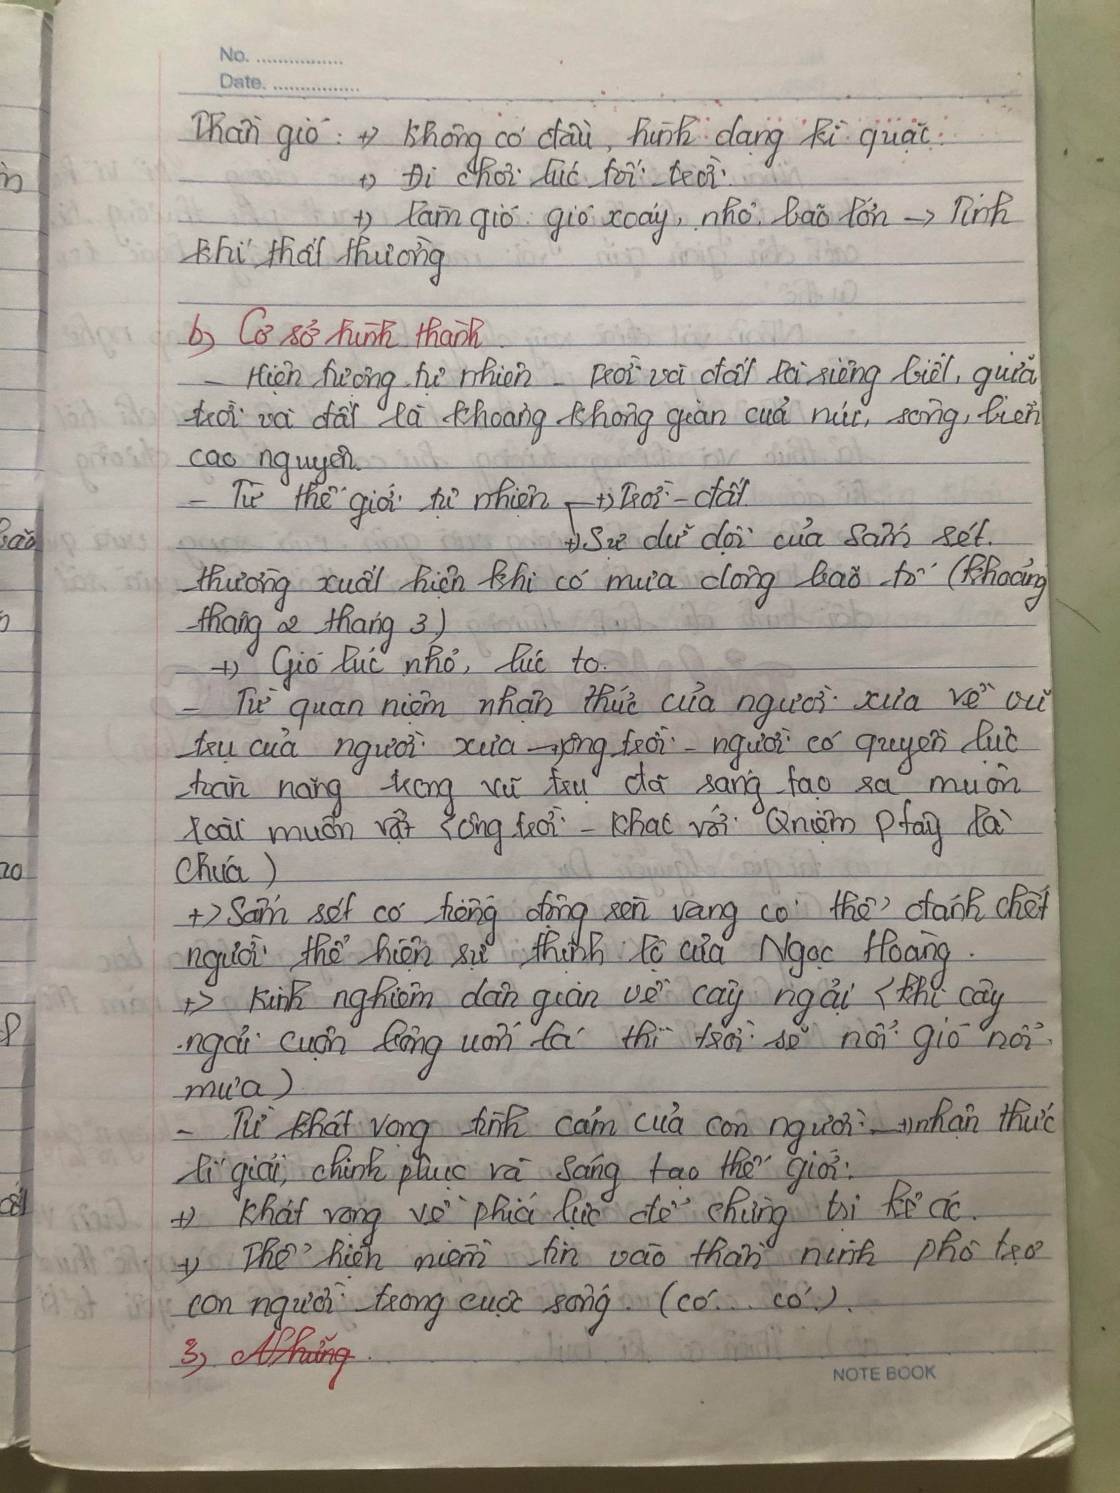 No. ................
Date. ................
Thần gió: +) Không có đầu, hình dạng kì quặc.
+) Đi chơi lúc tối trời.
+) Làm gió: gió xoáy, nhỏ, bão lớn → Tính
khí thất thường
b) Cơ sở hình thành
- Hiện tượng tự nhiên - trời và đất là riêng biệt, giữa
trời và đất là khoảng không gian của núi, sông, biển
cao nguyên.
- Từ thế giới tự nhiên +) Trời - đất
+) Sự dữ dội của sấm sét.
thường xuất hiện khi có mưa dông bão tố (khoảng
tháng 2 tháng 3)
+) Gió lúc nhỏ, lúc to.
- Từ quan niệm nhận thức của người xưa về vũ
trụ của người xưa → ông trời - người có quyền lực
toàn năng trong vũ trụ đã sáng tạo ra muôn
loài muôn vật <ông trời - khác với Qniệm Ptây là
chúa)
+) Sấm sét có tiếng động rền vang có thể đánh chết
người thể hiện sự thịnh lộ của Ngọc Hoàng.
+) Kinh nghiệm dân gian về cây ngải <khi cây
ngải cuộn bông uốn lá thì trời sẽ nổi gió nổi
mưa)
- Từ khát vọng tình cảm của con người → nhận thức
lí giải, chinh phục và sáng tạo thế giới:
+) Khát vọng về phía lực để chừng trị kẻ ác.
+) Thể hiện niềm tin vào thần ninh phò trợ
con người trong cuộc sống. (có... có.).
3) Những
NOTE BOOK